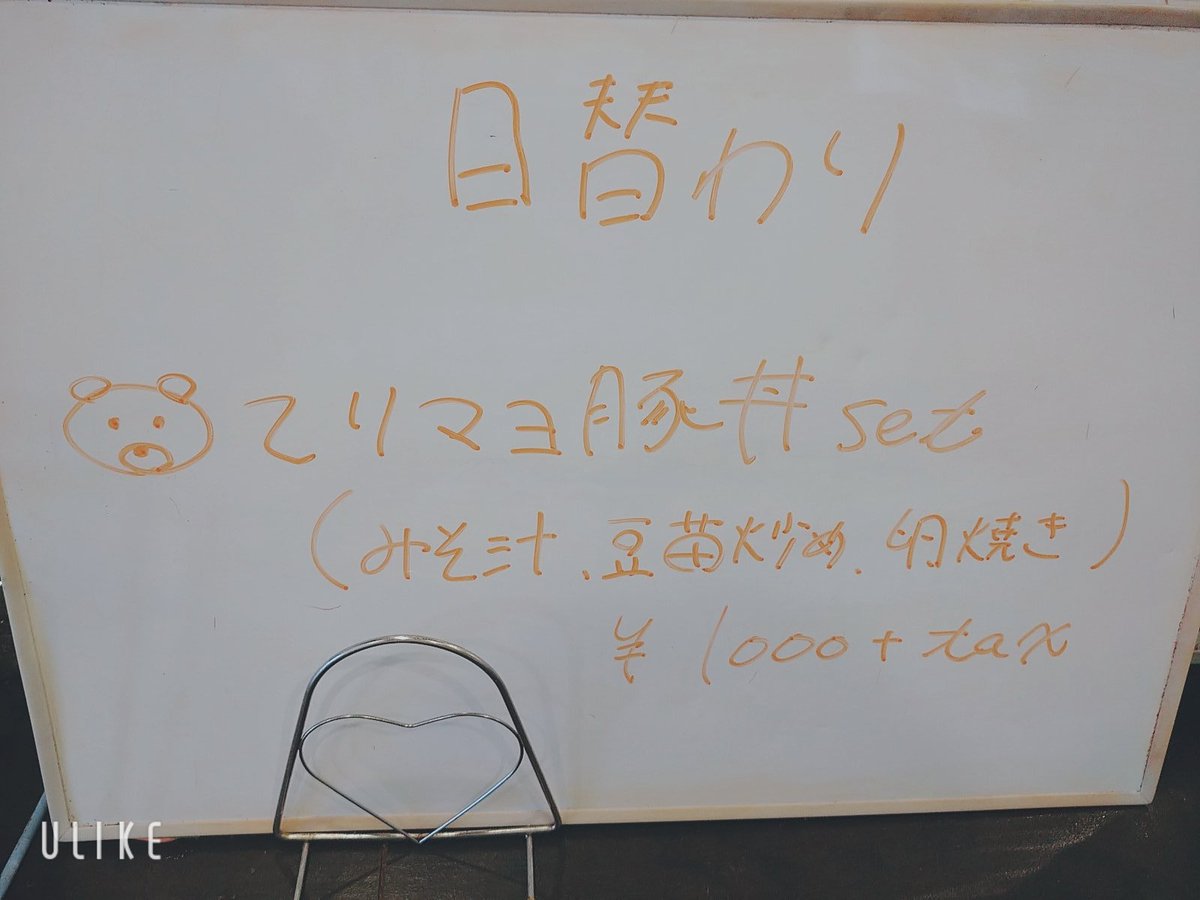 日替わり
てりマヨ豚丼set
(みそ汁、豆苗炒め、卵焼き)
¥1000+tax
ULIKE